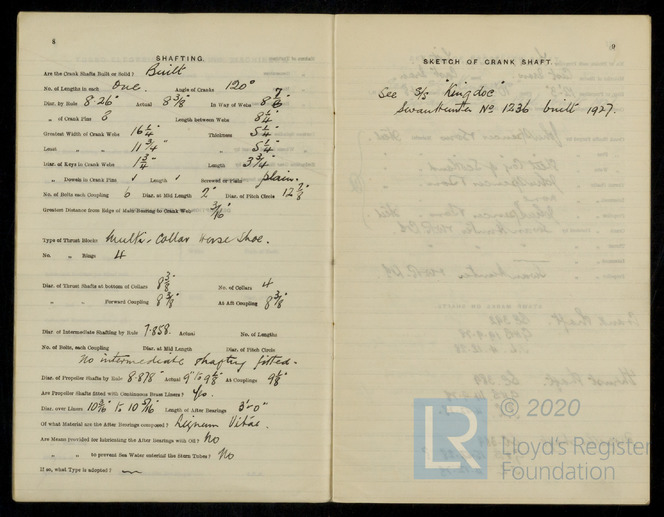 8
SHAFTING.
Are the Crank Shafts Built or Solid? Built
No. of Lengths in each One. Angle of Cranks 120°
Diar. by Rule 8.26" Actual 8 3/8" In Way of Webs 8 7/8"
„ of Crank Pins 8 Length between Webs 8 1/4"
Greatest Width of Crank Webs 16 1/4" Thickness 5 1/4"
Least „ „ 11 3/4" „ 5 1/4"
Diar. of Keys in Crank Webs 1 3/4" Length 3 3/4"
„ Dowels in Crank Pins ✓ Length ✓ Screwed or Plain plain.
No. of Bolts each Coupling 6 Diar. at Mid Length 2" Diar. of Pitch Circle 12 7/8"
Greatest Distance from Edge of Main Bearing to Crank Web 3/16"
Type of Thrust Blocks Multi-Collar Horse Shoe.
No. „ Rings 4
Diar. of Thrust Shafts at bottom of Collars 8 3/8" No. of Collars 4
„ „ Forward Coupling 8 3/8" At Aft Coupling 8 3/8"
Diar. of Intermediate Shafting by Rule 7.858. Actual No. of Lengths
No. of Bolts, each Coupling Diar. at Mid Length Diar. of Pitch Circle
No intermediate shafting fitted.
Diar. of Propeller Shafts by Rule 8.878" Actual 9" to 9 1/8" At Couplings 9 1/8"
Are Propeller Shafts fitted with Continuous Brass Liners? Yes.
Diar. over Liners 10 3/16" to 10 5/16" Length of After Bearings 3'-0"
Of what Material are the After Bearings composed? Lignum Vitae.
Are Means provided for lubricating the After Bearings with Oil? No
„ „ to prevent Sea Water entering the Stern Tubes? No
If so, what Type is adopted?
9
SKETCH OF CRANK SHAFT.
See S/S "Kingdoc"
Swan Hunter No 1236 built 1927.
© 2020
LR
Lloyd's Register
Foundation